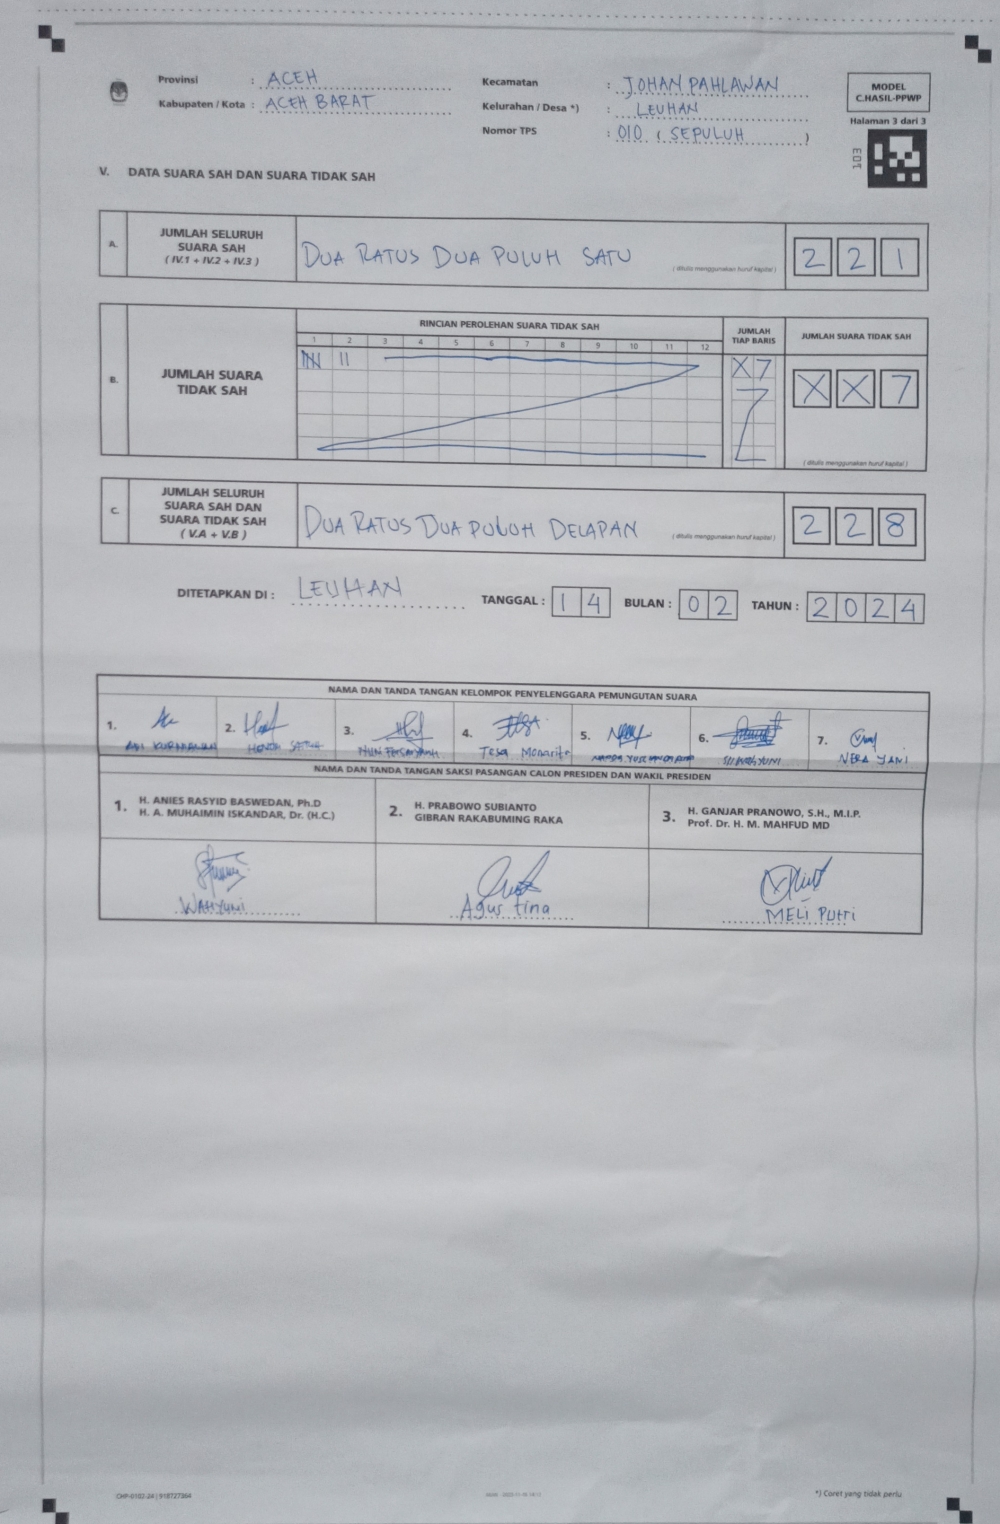 Provinsi : ACEH
Kabupaten / Kota : ACEH BARAT
Kecamatan : JOHAN PAHLAWAN
Kelurahan / Desa *) : LEUHAN
Nomor TPS : 010 ( SEPULUH )
MODEL
C.HASIL-PPWP
Halaman 3 dari 3
V. DATA SUARA SAH DAN SUARA TIDAK SAH
A. JUMLAH SELURUH
SUARA SAH
( IV.1 + IV.2 + IV.3 )
DUA RATUS DUA PULUH SATU
( ditulis menggunakan huruf kapital )
2 2 1
B. JUMLAH SUARA
TIDAK SAH
RINCIAN PEROLEHAN SUARA TIDAK SAH
1 2 3 4 5 6 7 8 9 10 11 12
JUMLAH
TIAP BARIS
X 7
JUMLAH SUARA TIDAK SAH
X X 7
( ditulis menggunakan huruf kapital )
C. JUMLAH SELURUH
SUARA SAH DAN
SUARA TIDAK SAH
( V.A + V.B )
DUA RATUS DUA PULUH DELAPAN
( ditulis menggunakan huruf kapital )
2 2 8
DITETAPKAN DI : LEUHAN TANGGAL : 1 4 BULAN : 0 2 TAHUN : 2 0 2 4
NAMA DAN TANDA TANGAN KELOMPOK PENYELENGGARA PEMUNGUTAN SUARA
1. 2. 3. 4. 5. 6. 7.
Tesa Monarita
NERA YANI
NAMA DAN TANDA TANGAN SAKSI PASANGAN CALON PRESIDEN DAN WAKIL PRESIDEN
1. H. ANIES RASYID BASWEDAN, Ph.D
H. A. MUHAIMIN ISKANDAR, Dr. (H.C.)
2. H. PRABOWO SUBIANTO
GIBRAN RAKABUMING RAKA
3. H. GANJAR PRANOWO, S.H., M.I.P.
Prof. Dr. H. M. MAHFUD MD
WAHYUNI
Agus tina
MELI PUTRI
*) Coret yang tidak perlu